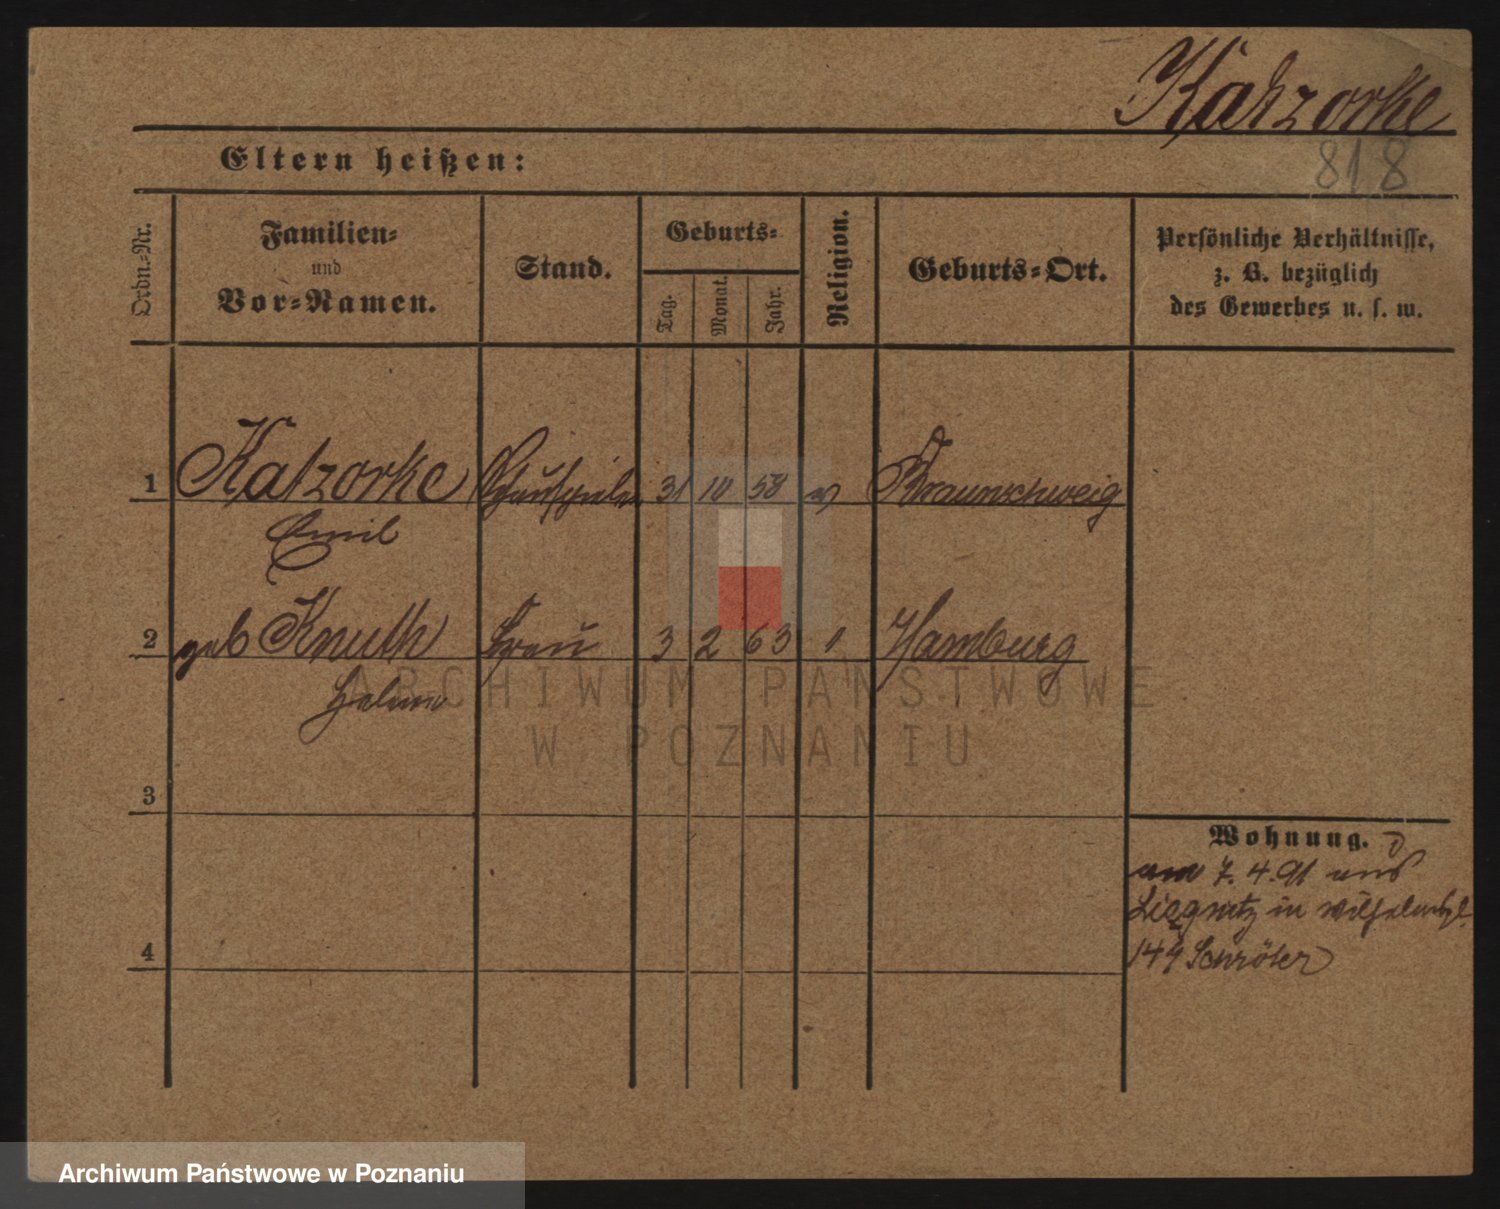 Katzorke
818
Eltern heißen:
Ordn.-Nr.
Familien-
und
Vor-Namen.
Stand.
Geburts-
Tag.
Monat.
Jahr.
Religion.
Geburts-Ort.
Persönliche Verhältnisse,
z. B. bezüglich
des Gewerbes u. s. w.
1 Katzorke Schauspieler 31 10 58 Braunschweig
Emil
2 geb Knuth Frau 3 2 63 Hamburg
Helene
3
4
Wohnung.
am 7. 4. 91 aus
Liegnitz in Wilhelmspl.
Schröter
ARCHIWUM PAŃSTWOWE
W POZNANIU
Archiwum Państwowe w Poznaniu